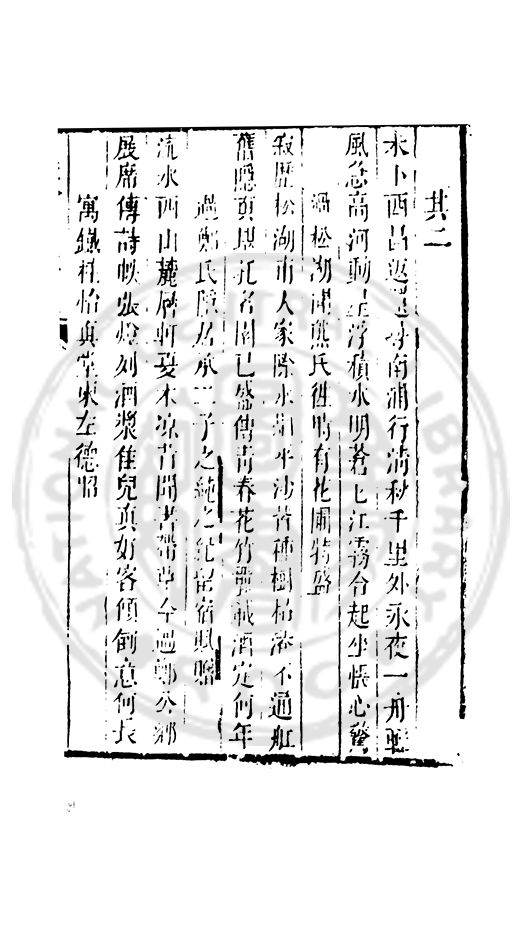 其二
未卜西昌返還尋南浦行清秋千里外永夜一舟
風急高河動星浮積水明蒼七江霧合起坐悵心驚
過松湖聞熊氏牡鴨有花圃特盛
寂歷松湖市人家際水湖平沙皆種樹枯港不通舡
舊隱須堪托名園已盛傳青春花竹載酒定何年
過鄭氏隱居承二子之純之紀留宿賦贈
流水西山麓層軒夏木涼昔聞書帶草今過鄭公鄉
展席傳詩帙張燈刻酒漿佳兒真好客傾倒意何長
寓鐵柱怡真堂柬左德昭